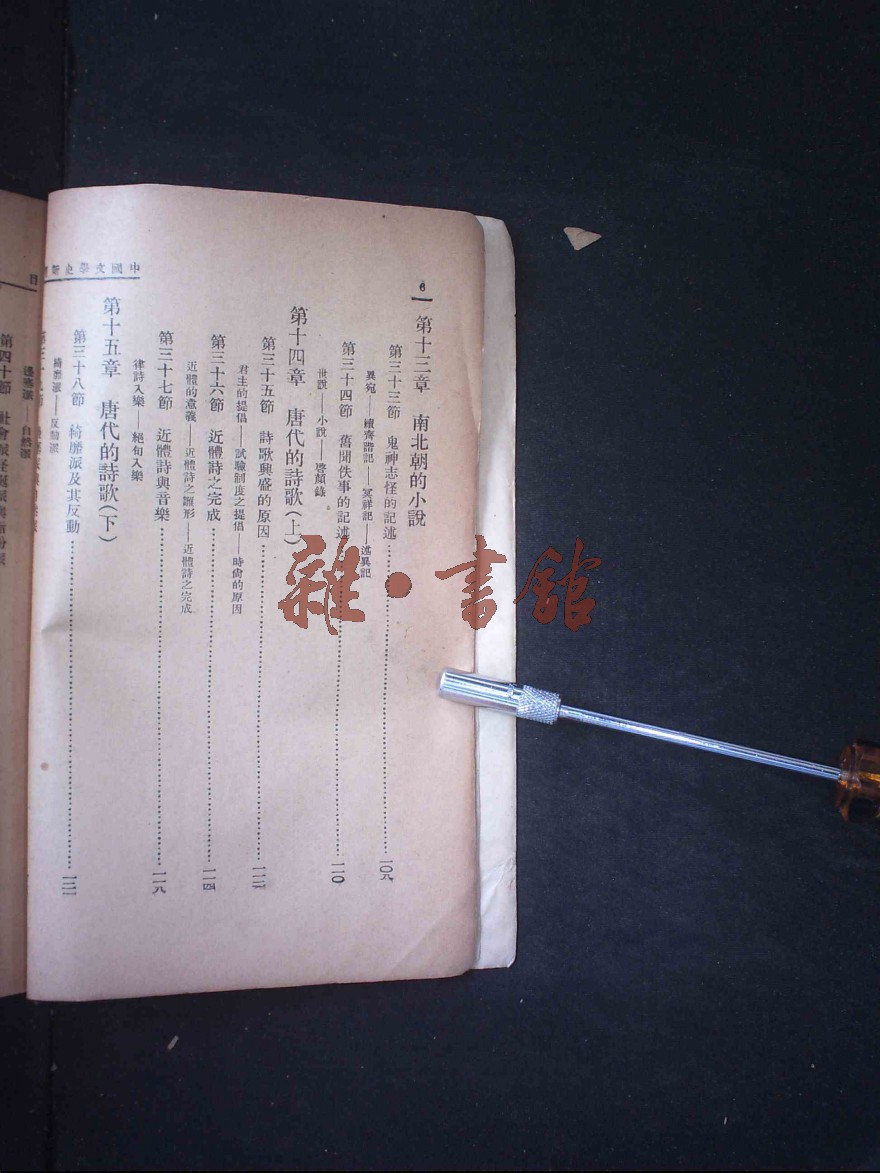 6
第十三章　南北朝的小說
第三十三節　鬼神志怪的記述……一〇九
異宛——續齊諧記——冥祥記——述異記
第三十四節　舊聞佚事的記述……一一〇
世說——小說——啓顏錄
第十四章　唐代的詩歌（上）
第三十五節　詩歌興盛的原因……一一二
君主的提倡——試驗制度之提倡——時尙的原因
第三十六節　近體詩之完成……一一四
近體的意義——近體詩之雛形——近體詩之完成
第三十七節　近體詩與音樂……一一八
律詩入樂——絕句入樂
第十五章　唐代的詩歌（下）
第三十八節　綺靡派及其反動……一二二
綺靡派——反動派
中國文學史新
邊塞派——自然派
第四十節　社會派
目
雜·書館